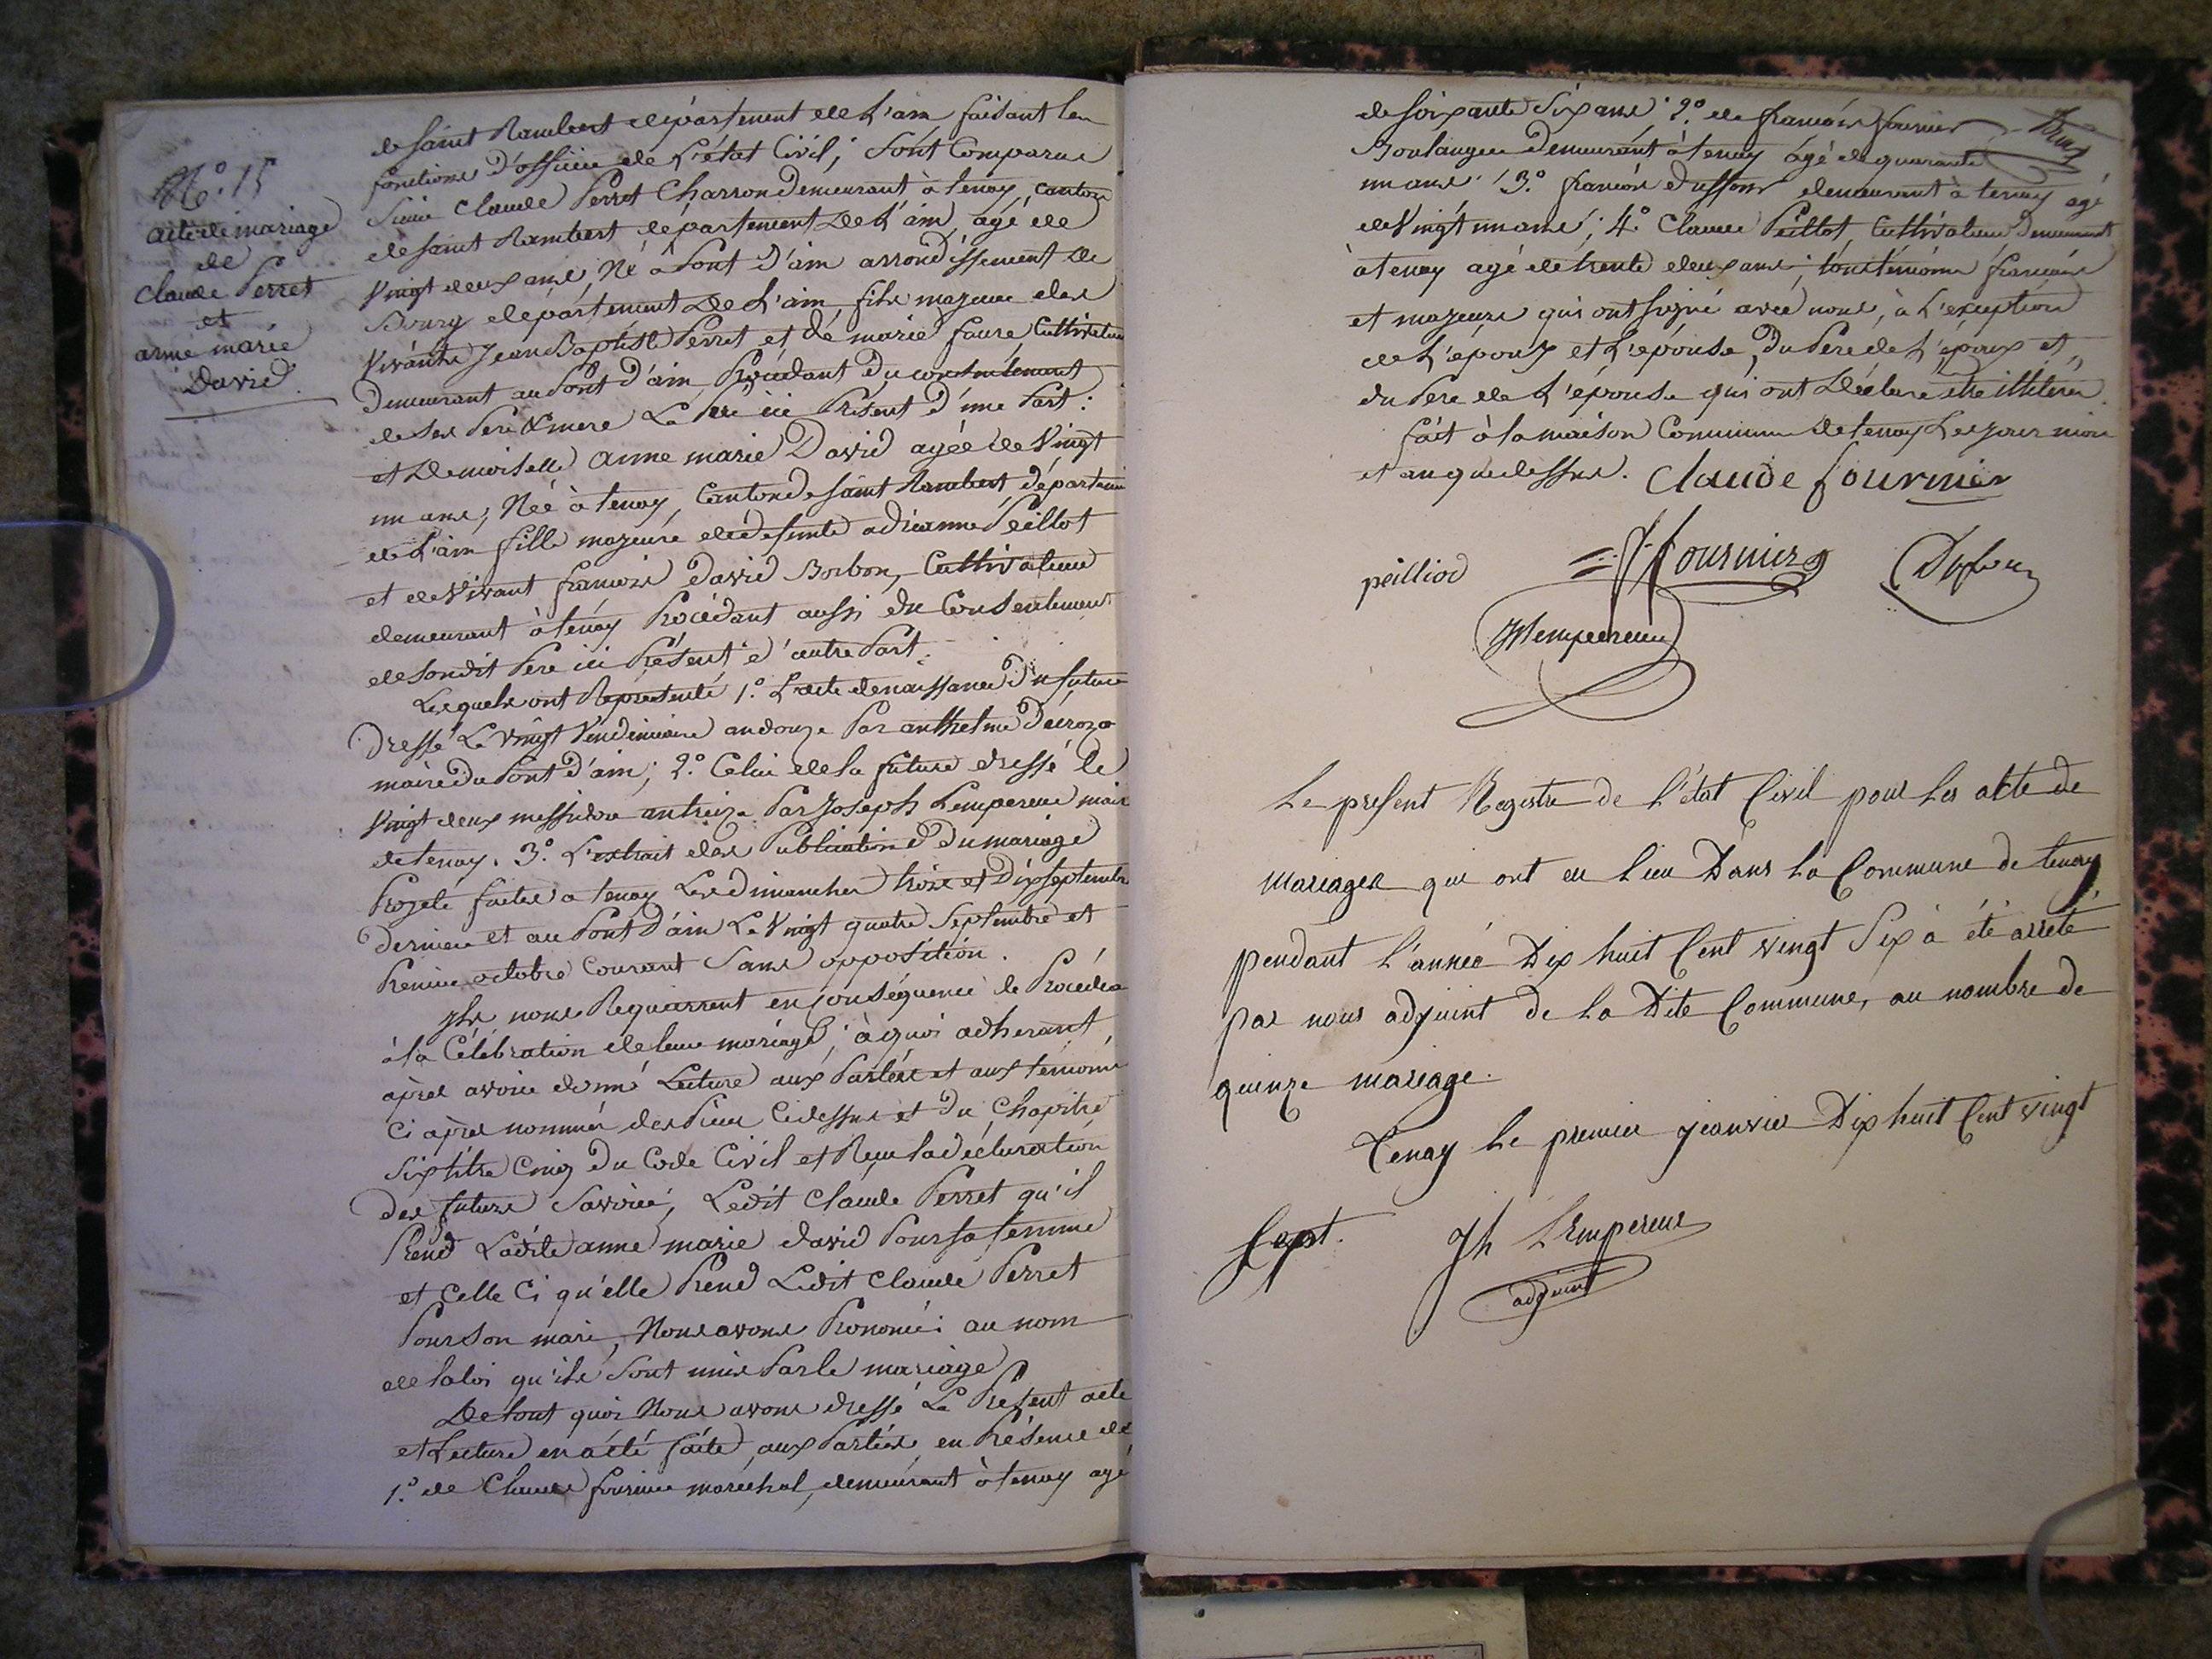 N.o 15
acte de mariage
de
Claude Perret
et
anne marie
David
de saint Rambert département de L'ain faisant les
fonctions d'officier de L'état Civil; sont Comparus
Sieur Claude Perret Charron demeurant à tenay, canton
de saint Rambert département De L'ain, agé de
Vingt deux ans, Né à Pont D'ain arrondissement de
Bourg département De L'ain, fils majeur des
Vivants Jean Baptiste Perret et de marie faure, Cultivateurs
Demeurant au Pont d'ain, Procédant Du consentement
de ses Pere & mere Le Pere ici Présent D'une Part:
et Demoiselle anne marie David agée de Vingt
un ans, Née à tenay, Canton de saint Rambert départem
de L'ain fille majeure de défunte adrianne Peillot
et de Vivant françois David Borbon, Cultivateur
demeurant à tenay Procédant aussi du Consentement
de Son dit Pere ici Présent d'autre Part.
Lesquels ont Représenté 1.o L'acte de naissance Du futur
Dressé Le Vingt Vendemiaire an douze Par anthelme Décroze
maire du Pont d'ain; 2.o Celui de la future dressé le
Vingt deux messidor an treize Par Joseph Lempereur maire
de tenay. 3.o L'extrait des Publications Du mariage
Projeté faites a tenay Les dimanches trois et Dix septembre
Dernier et au Pont D'ain Le Vingt quatre Septembre et
Premier octobre Courant Sans opposition.
Ils nous Requierrent en Conséquence de Procéder
à la Célébration de leur mariage; à quoi adherant
après avoir donné Lecture aux Parties et aux témoins
Ci après nommés des Pieces Ci dessus et du Chapitre
Six titre Cinq Du Code Civil et Reçu la déclaration
Des futurs Savoir; Ledit Claude Perret qu'il
Prend Ladite anne marie david Pour sa femme
et Celle Ci qu'elle Prend Ledit Claude Perret
Pour son mari, Nous avons Prononcé: au nom
de la loi qu'ils sont unis Par le mariage
De tout quoi Nous avons dressé Le Présent acte
et Lecture en a été faite, aux Parties, en Présence de
1.o de Claude fournier marechal, demeurant à tenay agé
de soixante Six ans 2.o de françois fournier
Boulanger Demeurant à tenay agé de quarante
un ans; 3.o françois dufour demeurant à tenay agé
de Vingt un ans; 4.o Claude Peillot, Cultivateur Demeurant
à tenay agé de trente deux ans; tous témoins françois
et majeurs qui ont signé avec nous, à L'exception
de L'époux et L'épouse, Du Pere de L'époux et
du Pere de L'épouse qui ont Déclaré être illétérés.
fait à la maison Commune de tenay Les jour mois
et an que dessus. Claude fournier
peilliod
fournier
Dufour
JhLempereur
Le present Registre de L'état Civil pour Les acte de
Mariages qui ont eu lieu Dans La Commune de tenay,
pendant L'année Dix huit Cent vingt Six à été arreté
par nous adjoint de La Dite Commune, au nombre de
quinze mariage.
Tenay Le premier Jeanvier Dix huit Cent vingt
Sept.
Jh LEmpereur
adjoint